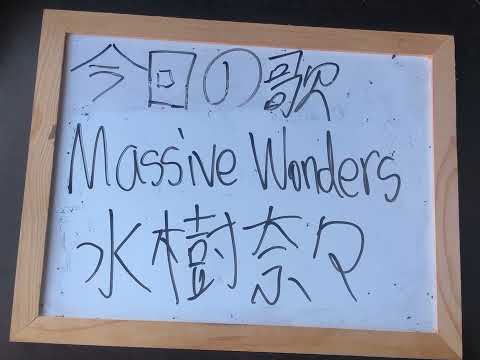 今回の歌
Massive Wonders
水樹奈々